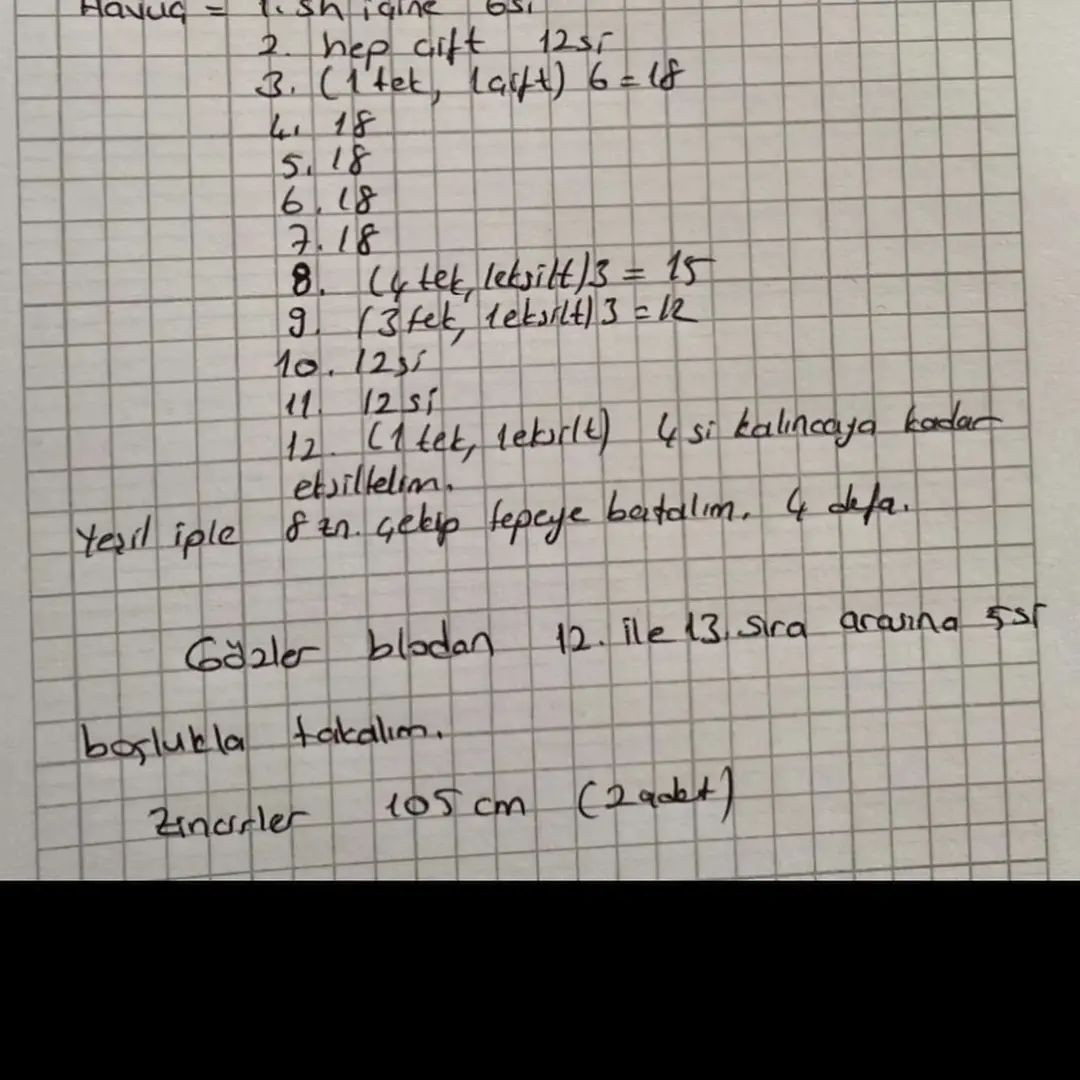 Havuç = 1. sh içine 6si
2. hep çift 12si
3. (1 tek, 1 çift) 6 = 18
4. 18
5. 18
6. 18
7. 18
8. (4 tek, 1eksilt) 3 = 15
9. (3 tek, 1eksilt) 3 = 12
10. 12si
11. 12si
12. (1 tek, 1eksilt) 4 si kalıncaya kadar
eksiltelim.
Yeşil iple 8 zn. çekip tepeye batalım. 4 defa.
Gözler 12. ile 13. sıra arasına 5si
boşlukla takalım.
Zincirler 105 cm (2 adet)